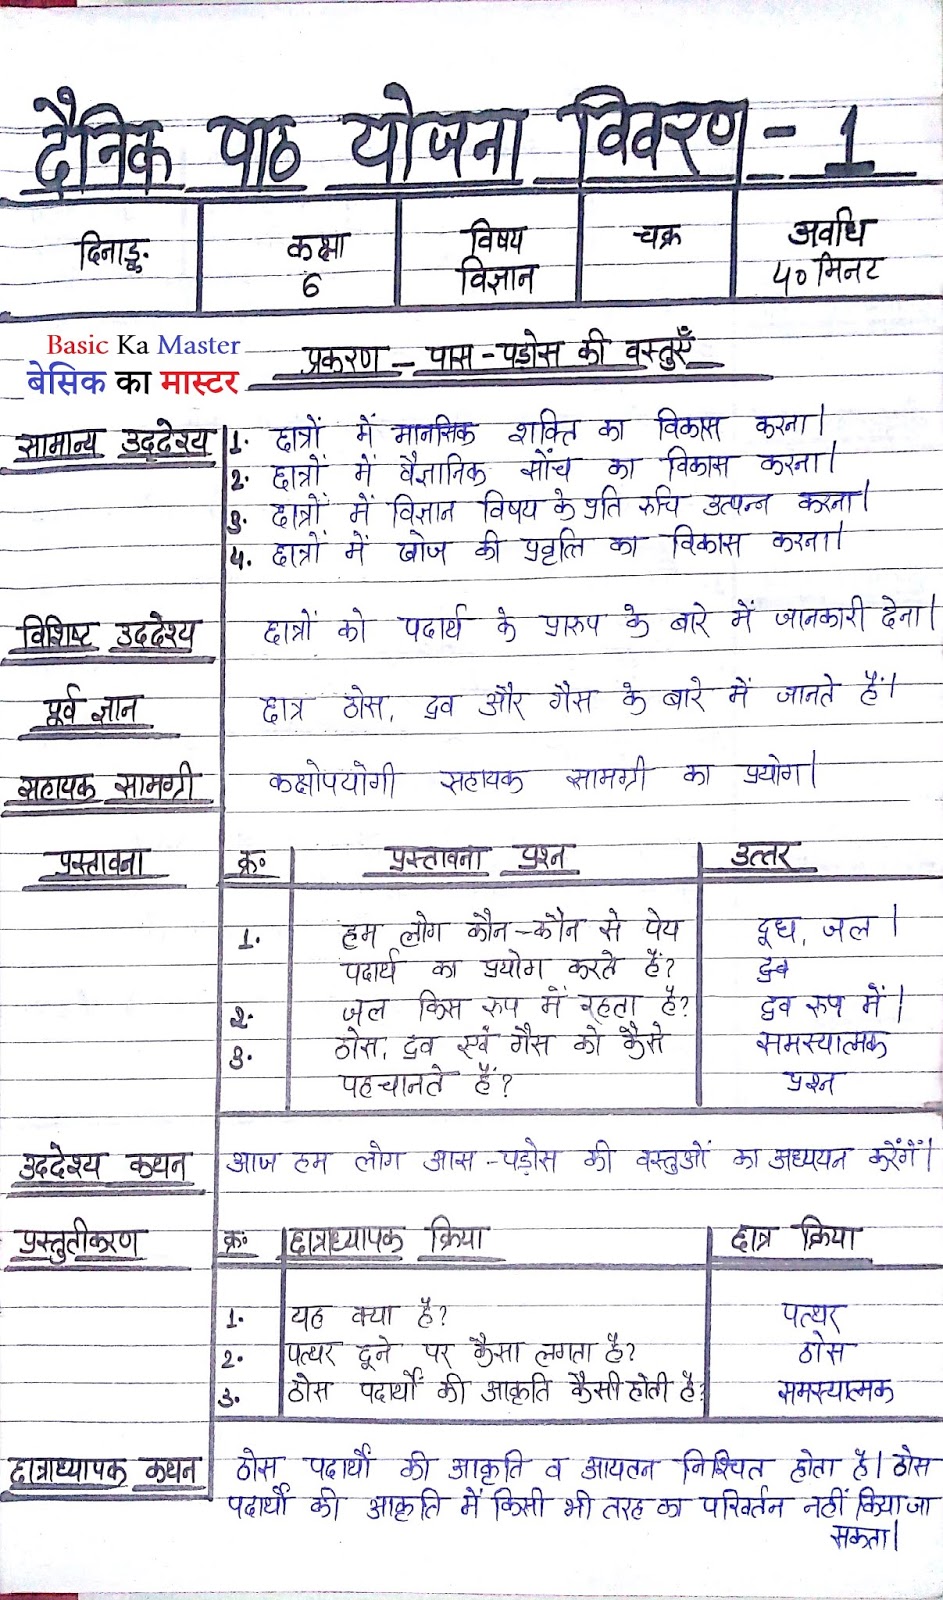 दैनिक पाठ योजना विवरण - 1
दिनाङ्क
कक्षा
6
विषय
विज्ञान
चक्र
अवधि
40 मिनट
Basic Ka Master
बेसिक का मास्टर
प्रकरण - पास - पड़ोस की वस्तुएँ
सामान्य उद्देश्य
1. छात्रों में मानसिक शक्ति का विकास करना।
2. छात्रों में वैज्ञानिक सोंच का विकास करना।
3. छात्रों में विज्ञान विषय के प्रति रुचि उत्पन्न करना।
4. छात्रों में खोज की प्रवृत्ति का विकास करना।
विशिष्ट उद्देश्य
छात्रों को पदार्थ के प्रारुप के बारे में जानकारी देना।
पूर्व ज्ञान
छात्र ठोस, द्रव और गैस के बारे में जानते हैं।
सहायक सामग्री
कक्षोपयोगी सहायक सामग्री का प्रयोग।
प्रस्तावना
क्र०
प्रस्तावना प्रश्न
उत्तर
1.
हम लोग कौन-कौन से पेय
दूध, जल।
पदार्थ का प्रयोग करते हैं?
द्रव
2.
जल किस रुप में रहता है?
द्रव रुप में।
3.
ठोस, द्रव एवं गैस को कैसे
समस्यात्मक
पहचानते हैं?
प्रश्न
उद्देश्य कथन
आज हम लोग आस-पड़ोस की वस्तुओं का अध्ययन करेंगें।
प्रस्तुतीकरण
क्र०
छात्राध्यापक क्रिया
छात्र क्रिया
1.
यह क्या है?
पत्थर
2.
पत्थर छूने पर कैसा लगता है?
ठोस
3.
ठोस पदार्थों की आकृति कैसी होती है?
समस्यात्मक
छात्राध्यापक कथन
ठोस पदार्थों की आकृति व आयतन निश्चित होता है। ठोस
पदार्थों की आकृति में किसी भी तरह का परिवर्तन नहीं किया जा
सकता।